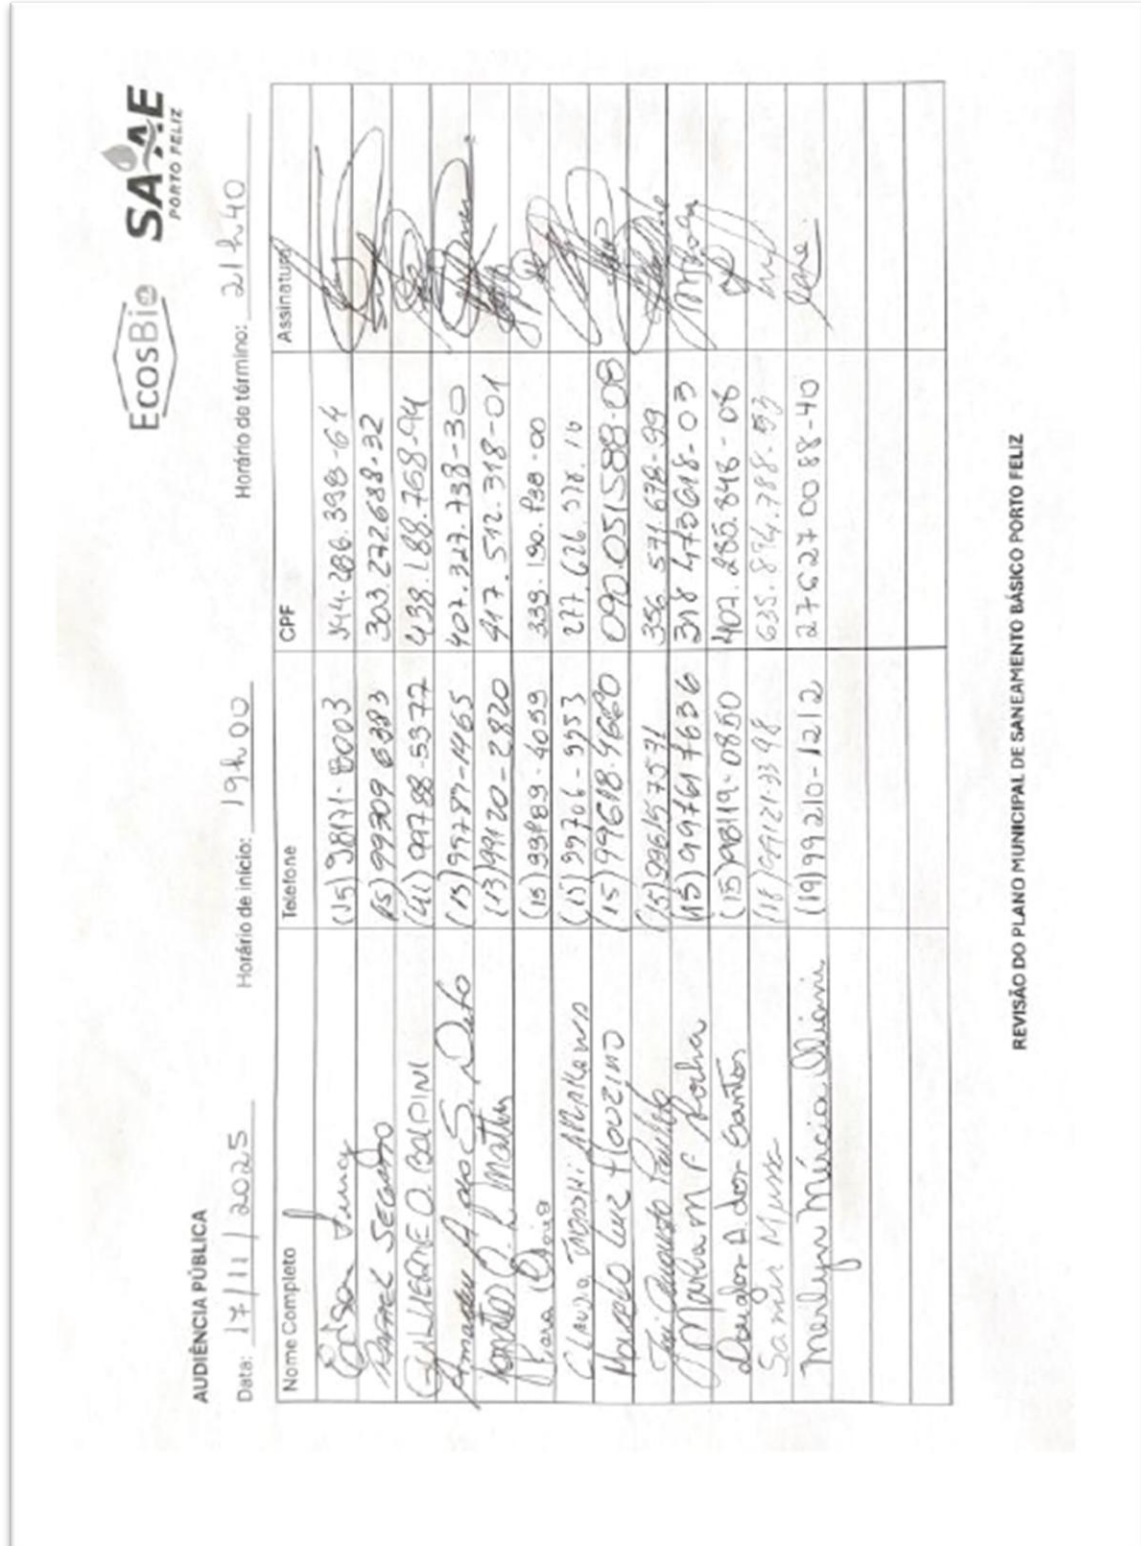 EcosBio SAAE
PORTO FELIZ
AUDIÊNCIA PÚBLICA
Data: 17/11/2025 Horário de início: 19h00 Horário do término: 21h40
Nome Completo Telefone CPF Assinatura
(15) 98171-8003 344.286.398-64
RAFAEL SEGATTO (15) 99709 6383 303.272688-32
GUILHERME O. BOLDINI (41) 99788-5377 439.188.768-94
Amadeu A. dos S. Neto (15) 99787-1465 407.327.738-30
(13) 99120-2820 417.512.318-01
(15) 4059 339.190.
CLAUDIO (15) 99706-9953 277.626.
Marcelo Luiz FLOUZINO (15) 99618-9660 090.051588-08
José Augusto (15) 996157571 356 571 678-99
Marta M F Rocha (15) 997617636 318 473618-03
Douglas A. dos Santos (15) 98119-0850 402.285.848-06
Samir Mussa (18) 99121-3398 635.894.788-53
Marilyn Márcia (19) 99210-1212 276270088-40
REVISÃO DO PLANO MUNICIPAL DE SANEAMENTO BÁSICO PORTO FELIZ